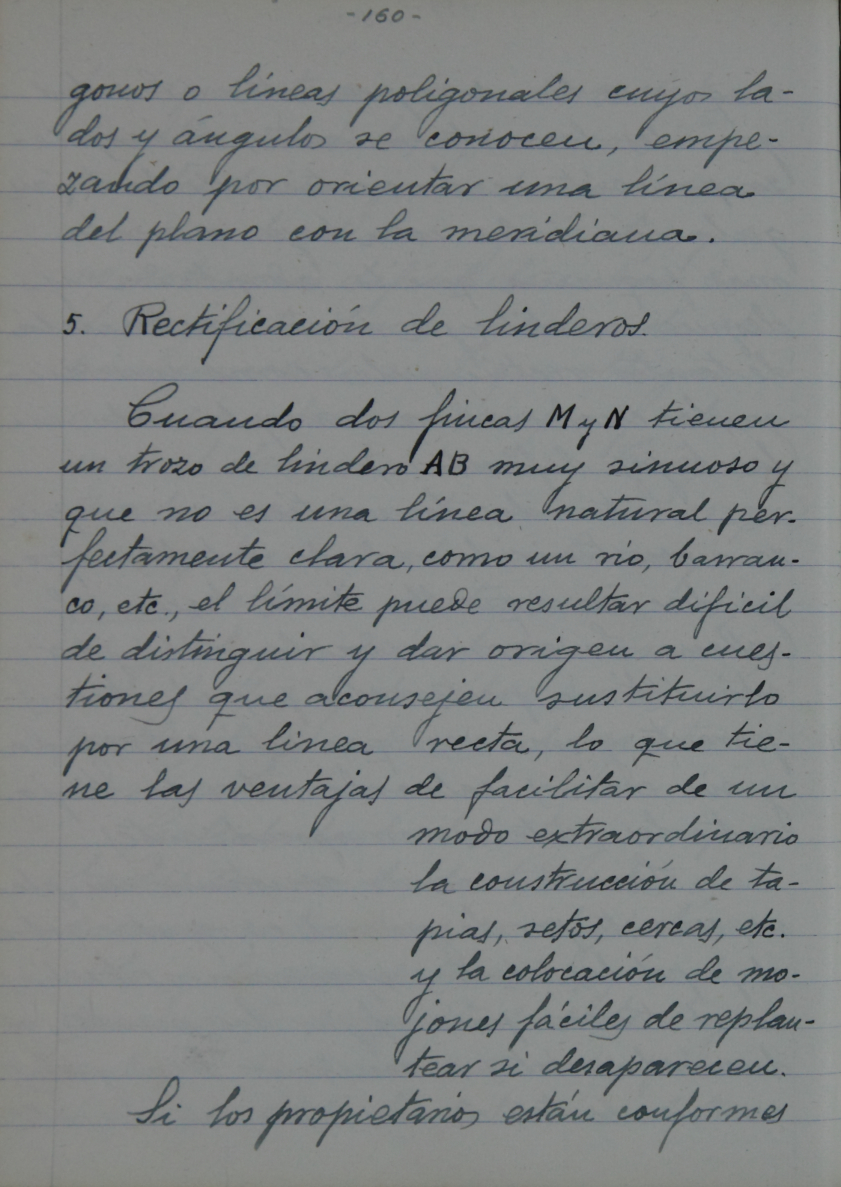 -160-
gonos o líneas poligonales cuyos la-
dos y ángulos se conocen, empe-
zando por orientar una línea
del plano con la meridiana.
5. Rectificación de linderos.
Cuando dos fincas M y N tienen
un trozo de lindero AB muy sinuoso y
que no es una línea natural per-
fectamente clara, como un río, barran-
co, etc., el límite puede resultar difícil
de distinguir y dar origen a cues-
tiones que aconsejen sustituirlo
por una linea recta, lo que tie-
ne las ventajas de facilitar de un
modo extraordinario
la construcción de ta-
pias, setos, cercas, etc.
y la colocación de mo-
jones fáciles de replan-
tear si desaparecen.
Si los propietarios están conformes